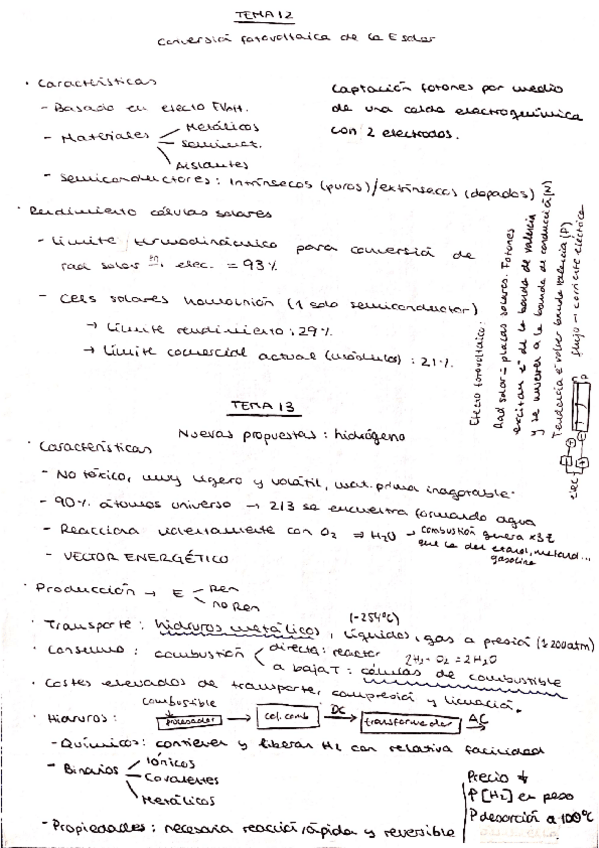 TEMA 12
Conversión fotovoltaica de la E solar
· Características
- Basado en efecto
- Materiales
Metálicos
Semimet.
Aislantes
- Semiconductores: Intrínsecos (puros)/extrínsecos (dopados)
Captación fotones por medio
de una celda electroquímica
con 2 electrodos.
· Rendimiento células solares
- Límite termodinámico para conversión de
rad solar en elec. = 93%
- Cells solares homounión (1 solo semiconductor)
→ Límite rendimiento: 29%
→ Límite comercial actual (módulos): 21%
Efecto fotovoltaico:
Rad solar - placas solares. Fotones
excitan e- de la banda de valencia
y se mueven a la banda de conducción (N)
Tendencia e- volver banda valencia (P)
flujo → corriente eléctrica
elec
TEMA 13
Nuevas propuestas: hidrógeno
· Características
- No tóxico, muy ligero y volátil, mat. prima inagotable.
- 90% átomos universo → 2/3 se encuentra formando agua
- Reacciona violentamente con O2 ⇒ H2O → combustión genera x3 E
que la del etanol, metanol...
gasolina
- VECTOR ENERGÉTICO
· Producción → E
Ren
no Ren
· Transporte: hidruros metálicos, líquidos, gas a presión (≥200atm)
(-254ºC)
· Consumo: combustión
directa: reactor
2H2 + O2 = 2H2O
a baja T: células de combustible
· Costes elevados de transporte, compresión y licuación.
· Hidruros:
combustible
procesador → cel. comb DC→ transformador AC→
- Químicos: contienen y liberan H2 con relativa facilidad
- Binarios
Iónicos
Covalentes
Metálicos
- Propiedades: necesaria reacción rápida y reversible
Precio ↓
P [H2] en peso
P desorción a 100ºC